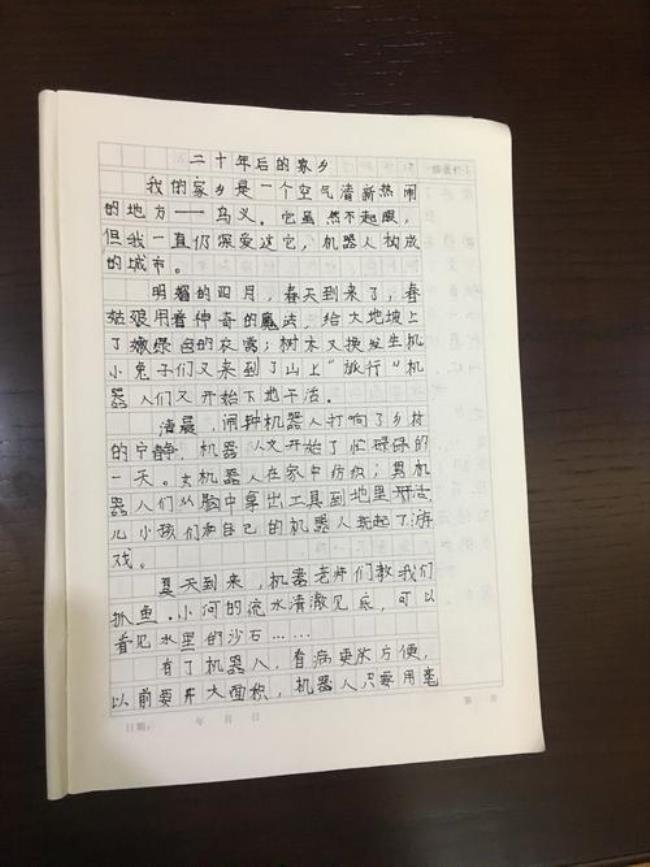 二十年后的家乡
我的家乡是一个空气清新热闹
的地方——乌义。它虽然不起眼，
但我一直仍深爱这它，机器人构成
的城市。
明媚的四月，春天到来了，春
姑娘用着神奇的魔法，给大地坡上
了嫩绿色的衣露；树木又换发生机
小兔子们又来到了山上“旅行”机
器人们又开始下地干活。
清晨，闹钟机器人打响了乡村
的宁静，机器人又开始了忙碌碌的
一天。女机器人在家中纺织；男机
器人们从脑中拿出工具到地里
儿小孩们和自己的机器人玩起了游
戏。
夏天到来，机器老师们教我们
抓鱼．小河的流水清澈见底，可以
看见水里的沙石……
有了机器人，看病更加方便，
以前要开大面积，机器人只要用毫
日期： 年 月 日
第 页